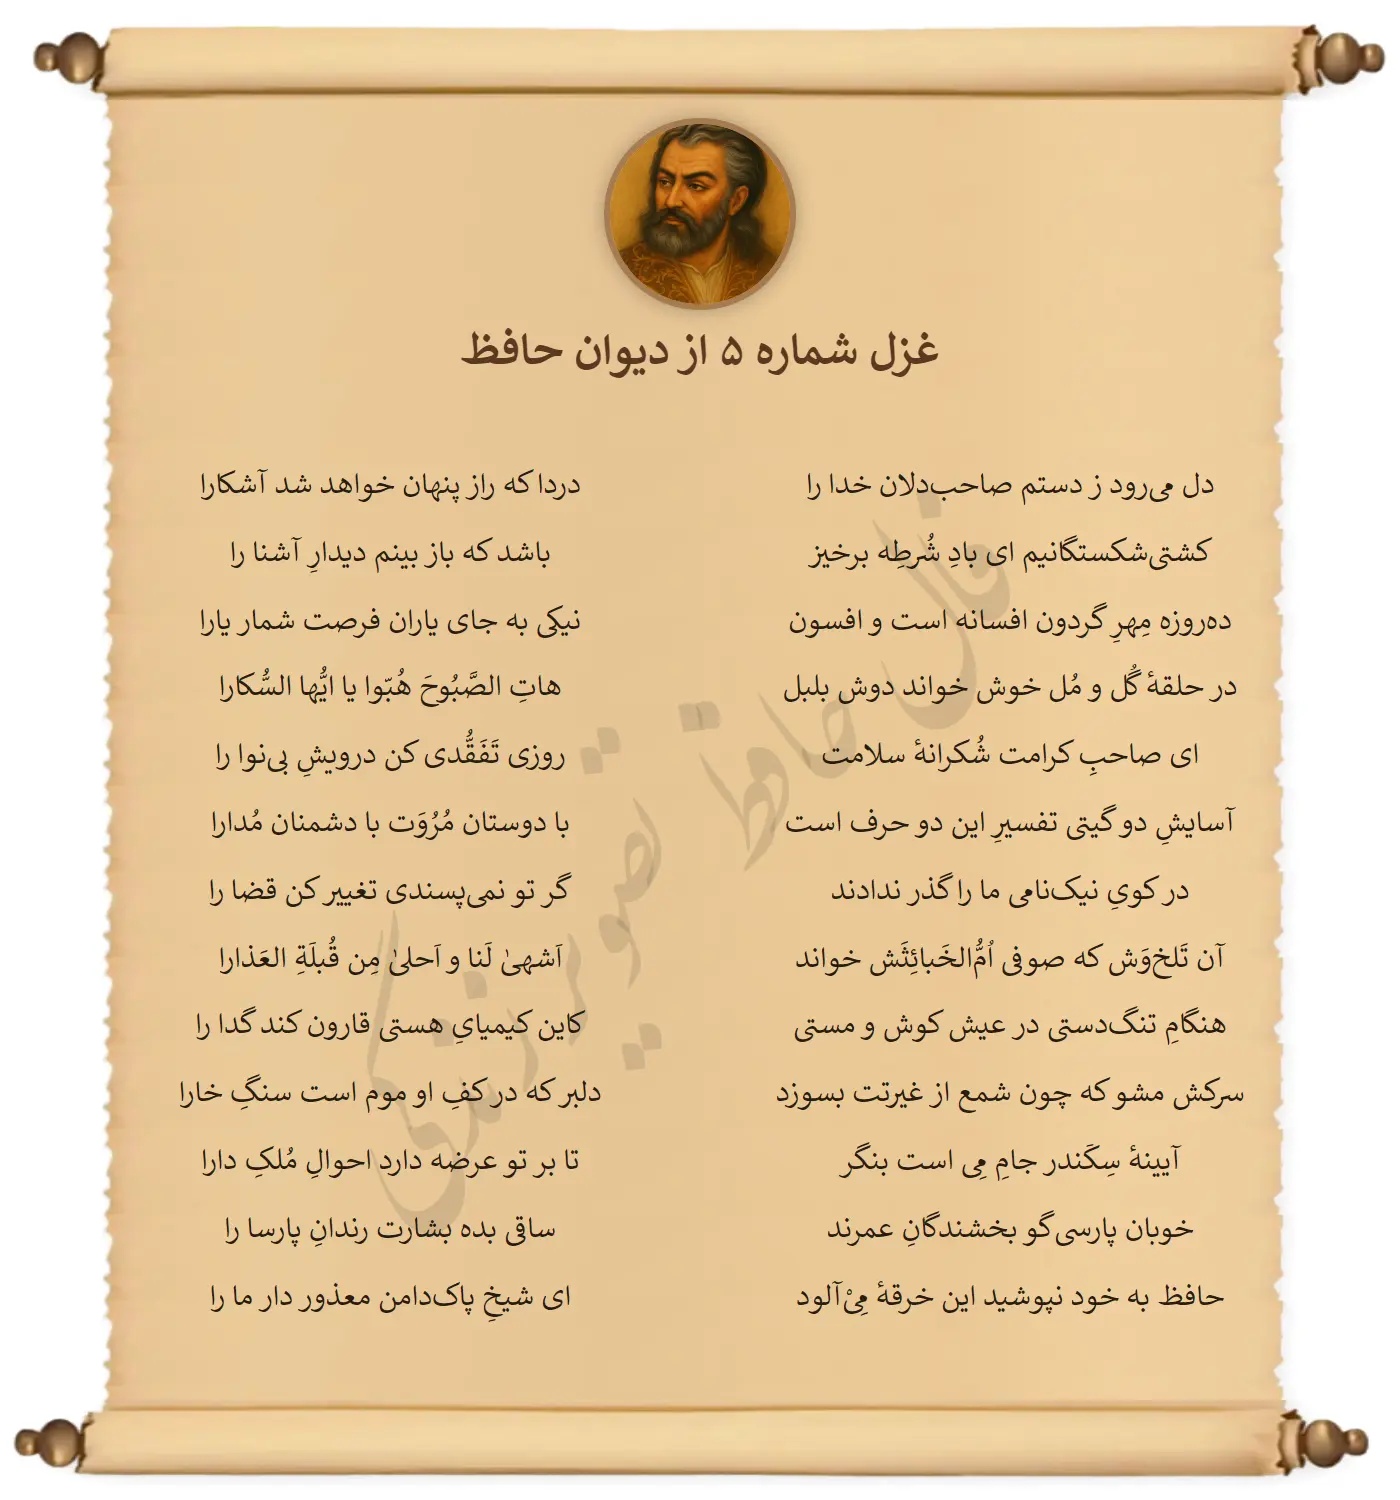 غزل شماره ۵ از دیوان حافظ
دل می‌رود ز دستم صاحب‌دلان خدا را دردا که راز پنهان خواهد شد آشکارا
کشتی‌شکستگانیم ای بادِ شُرطِه برخیز باشد که باز بینم دیدارِ آشنا را
ده‌روزه مِهرِ گردون افسانه است و افسون نیکی به جای یاران فرصت شمار یارا
در حلقهٔ گُل و مُل خوش خواند دوش بلبل هاتِ الصَّبُوحَ هُبّوا یا ایُّها السُّکارا
ای صاحبِ کرامت شُکرانهٔ سلامت روزی تَفَقُّدی کن درویشِ بی‌نوا را
آسایشِ دو گیتی تفسیرِ این دو حرف است با دوستان مُرُوَت با دشمنان مُدارا
در کویِ نیک‌نامی ما را گذر ندادند گر تو نمی‌پسندی تغییر کن قضا را
آن تَلخ‌وَش که صوفی اُمُّ‌الخَبائِثَش خواند اَشهیٰ لَنا و اَحلیٰ مِن قُبلَةِ العَذارا
هنگامِ تنگ‌دستی در عیش کوش و مستی کاین کیمیایِ هستی قارون کند گدا را
سرکش مشو که چون شمع از غیرتت بسوزد دلبر که در کفِ او موم است سنگِ خارا
آیینهٔ سِکَندر جامِ مِی است بنگر تا بر تو عرضه دارد احوالِ مُلکِ دارا
خوبان پارسی‌گو بخشندگانِ عمرند ساقی بده بشارت رندانِ پارسا را
حافظ به خود نپوشید این خرقهٔ مِیْ‌آلود ای شیخِ پاک‌دامن معذور دار ما را
فال حافظ تصویر زندگی